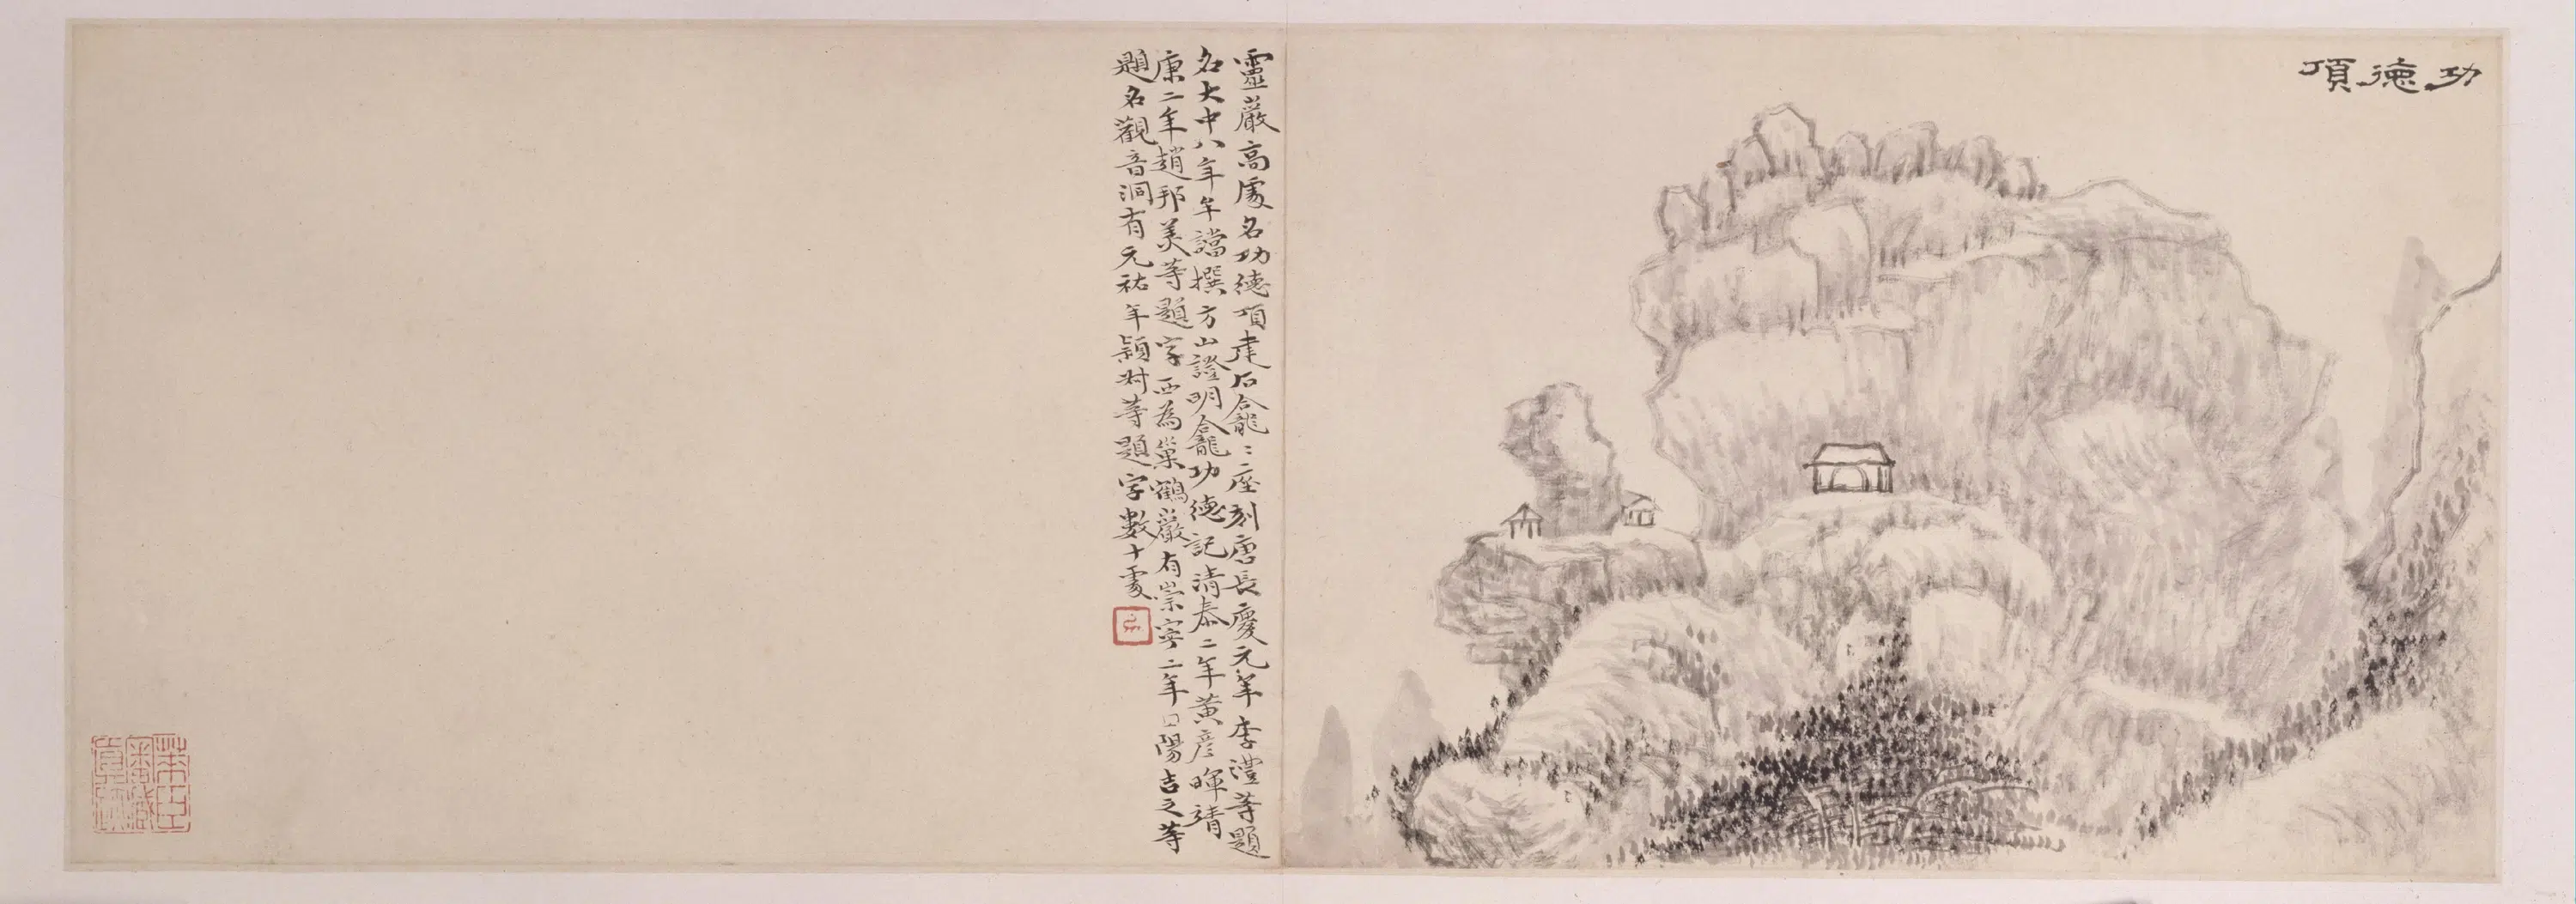 功德頂
靈巖高處名功德頂建石龕二座刻唐長慶元年李澧等題
名大中八年牟璫撰方山證明龕功德記清泰二年黃彥暉靖
康二年趙邦美等題字西為巢鶴巖有崇寧二年□陽吉之等
題名觀音洞有元祐年潁對等題字數十處